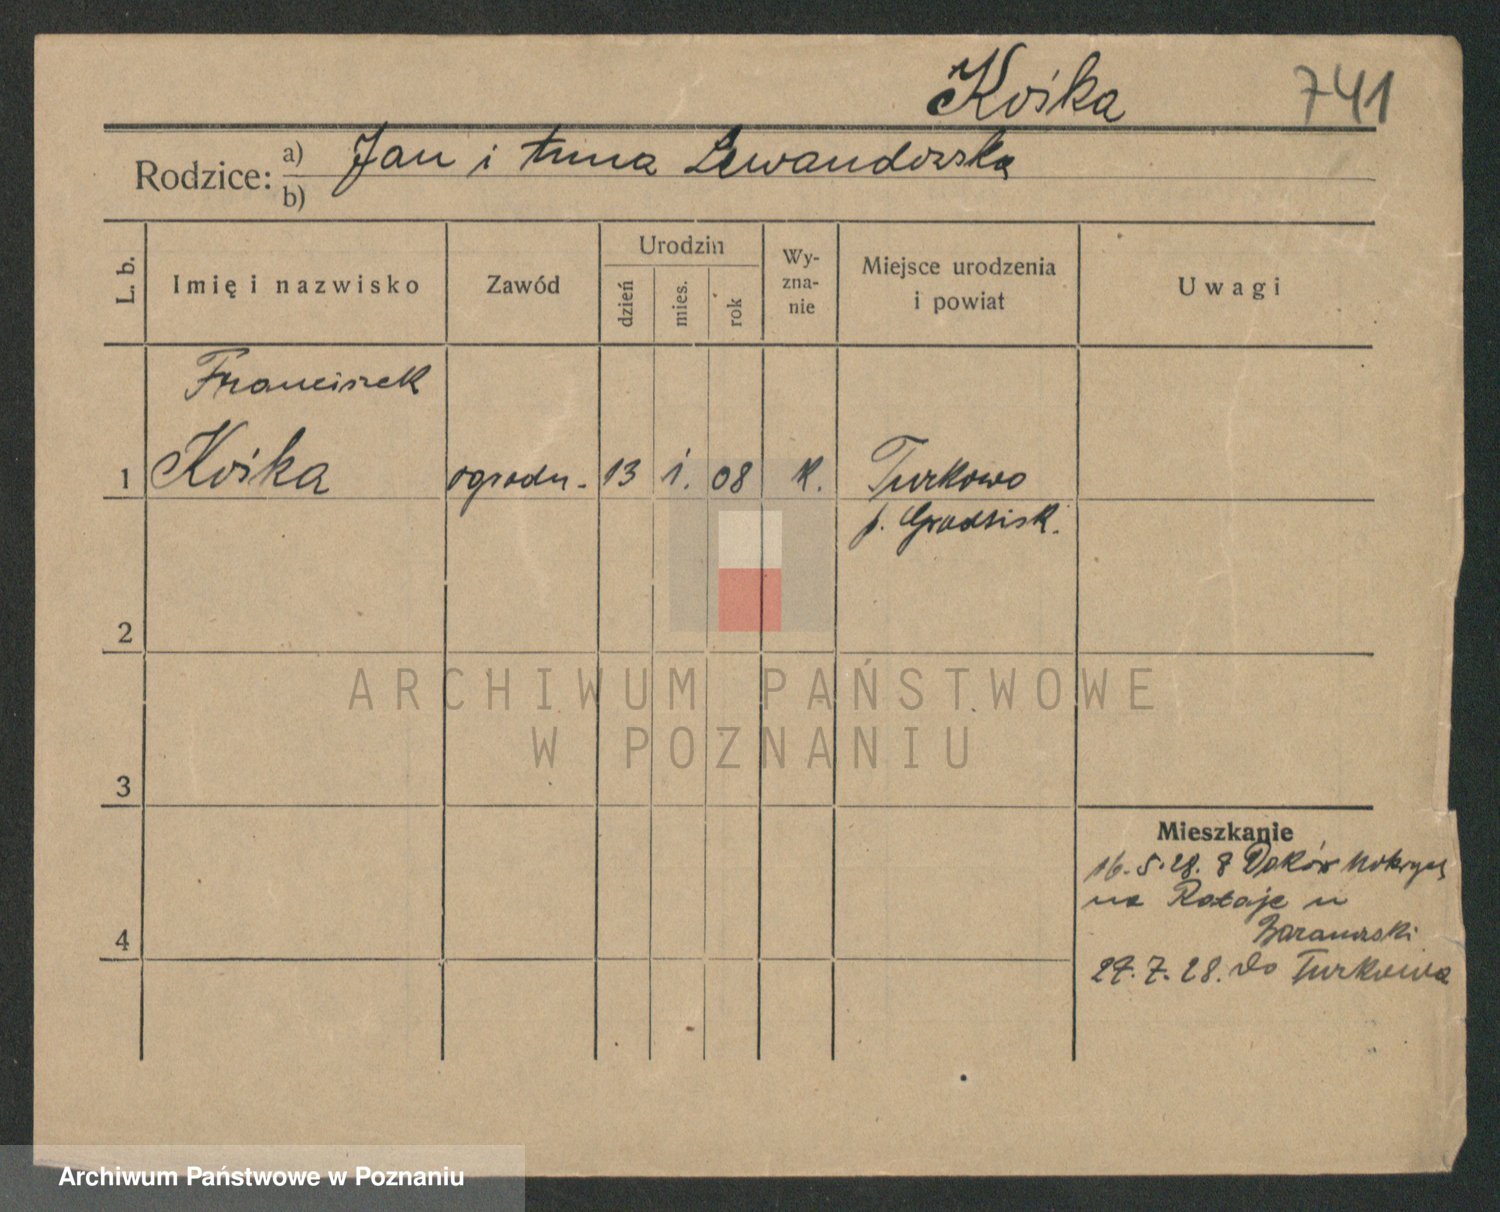 Kośka 741
Rodzice: a) Jan i Anna Lewandowska
b)
L. b. Imię i nazwisko Zawód Urodzin dzień mies. rok Wy-zna-nie Miejsce urodzenia i powiat Uwagi
Franciszek
1 Kośka ogrodn. 13 1. 08 k. Turkowo
p. Grodzisk.
2
ARCHIWUM PAŃSTWOWE
W POZNANIU
3
Mieszkanie
16.5.28. z
na Rataje u
4 Baranowski
27.7.28. do Turkowa
Archiwum Państwowe w Poznaniu